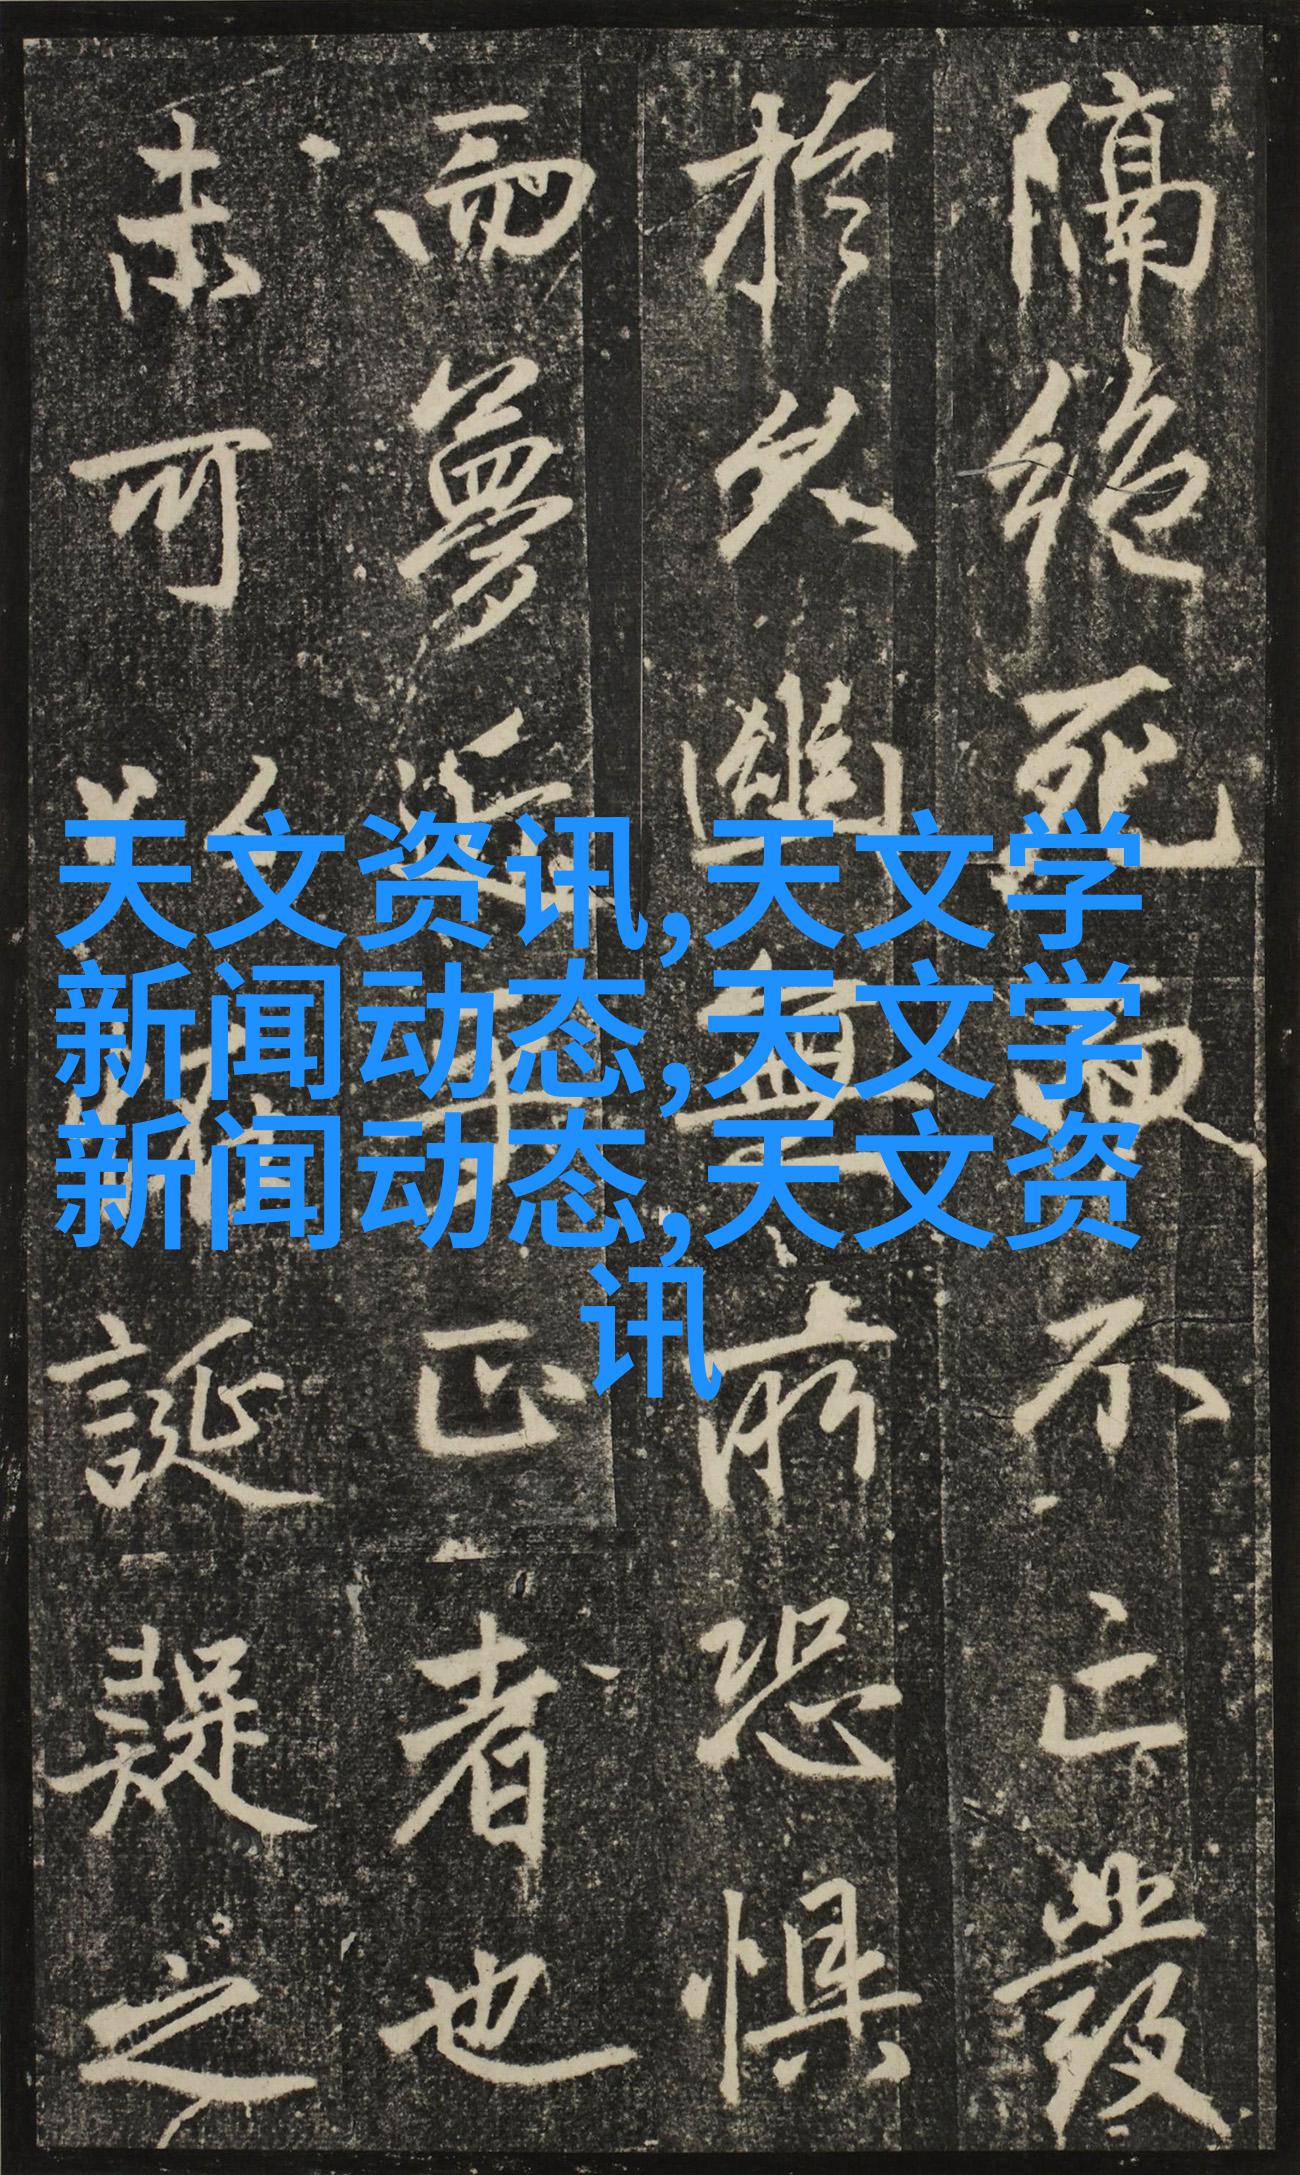 隔絶死而不亡發
於久幽無所恐懼
而夢近乎正者也
未可以誕疑之
天文资讯,天文学
新闻动态,天文学
新闻动态,天文资
讯